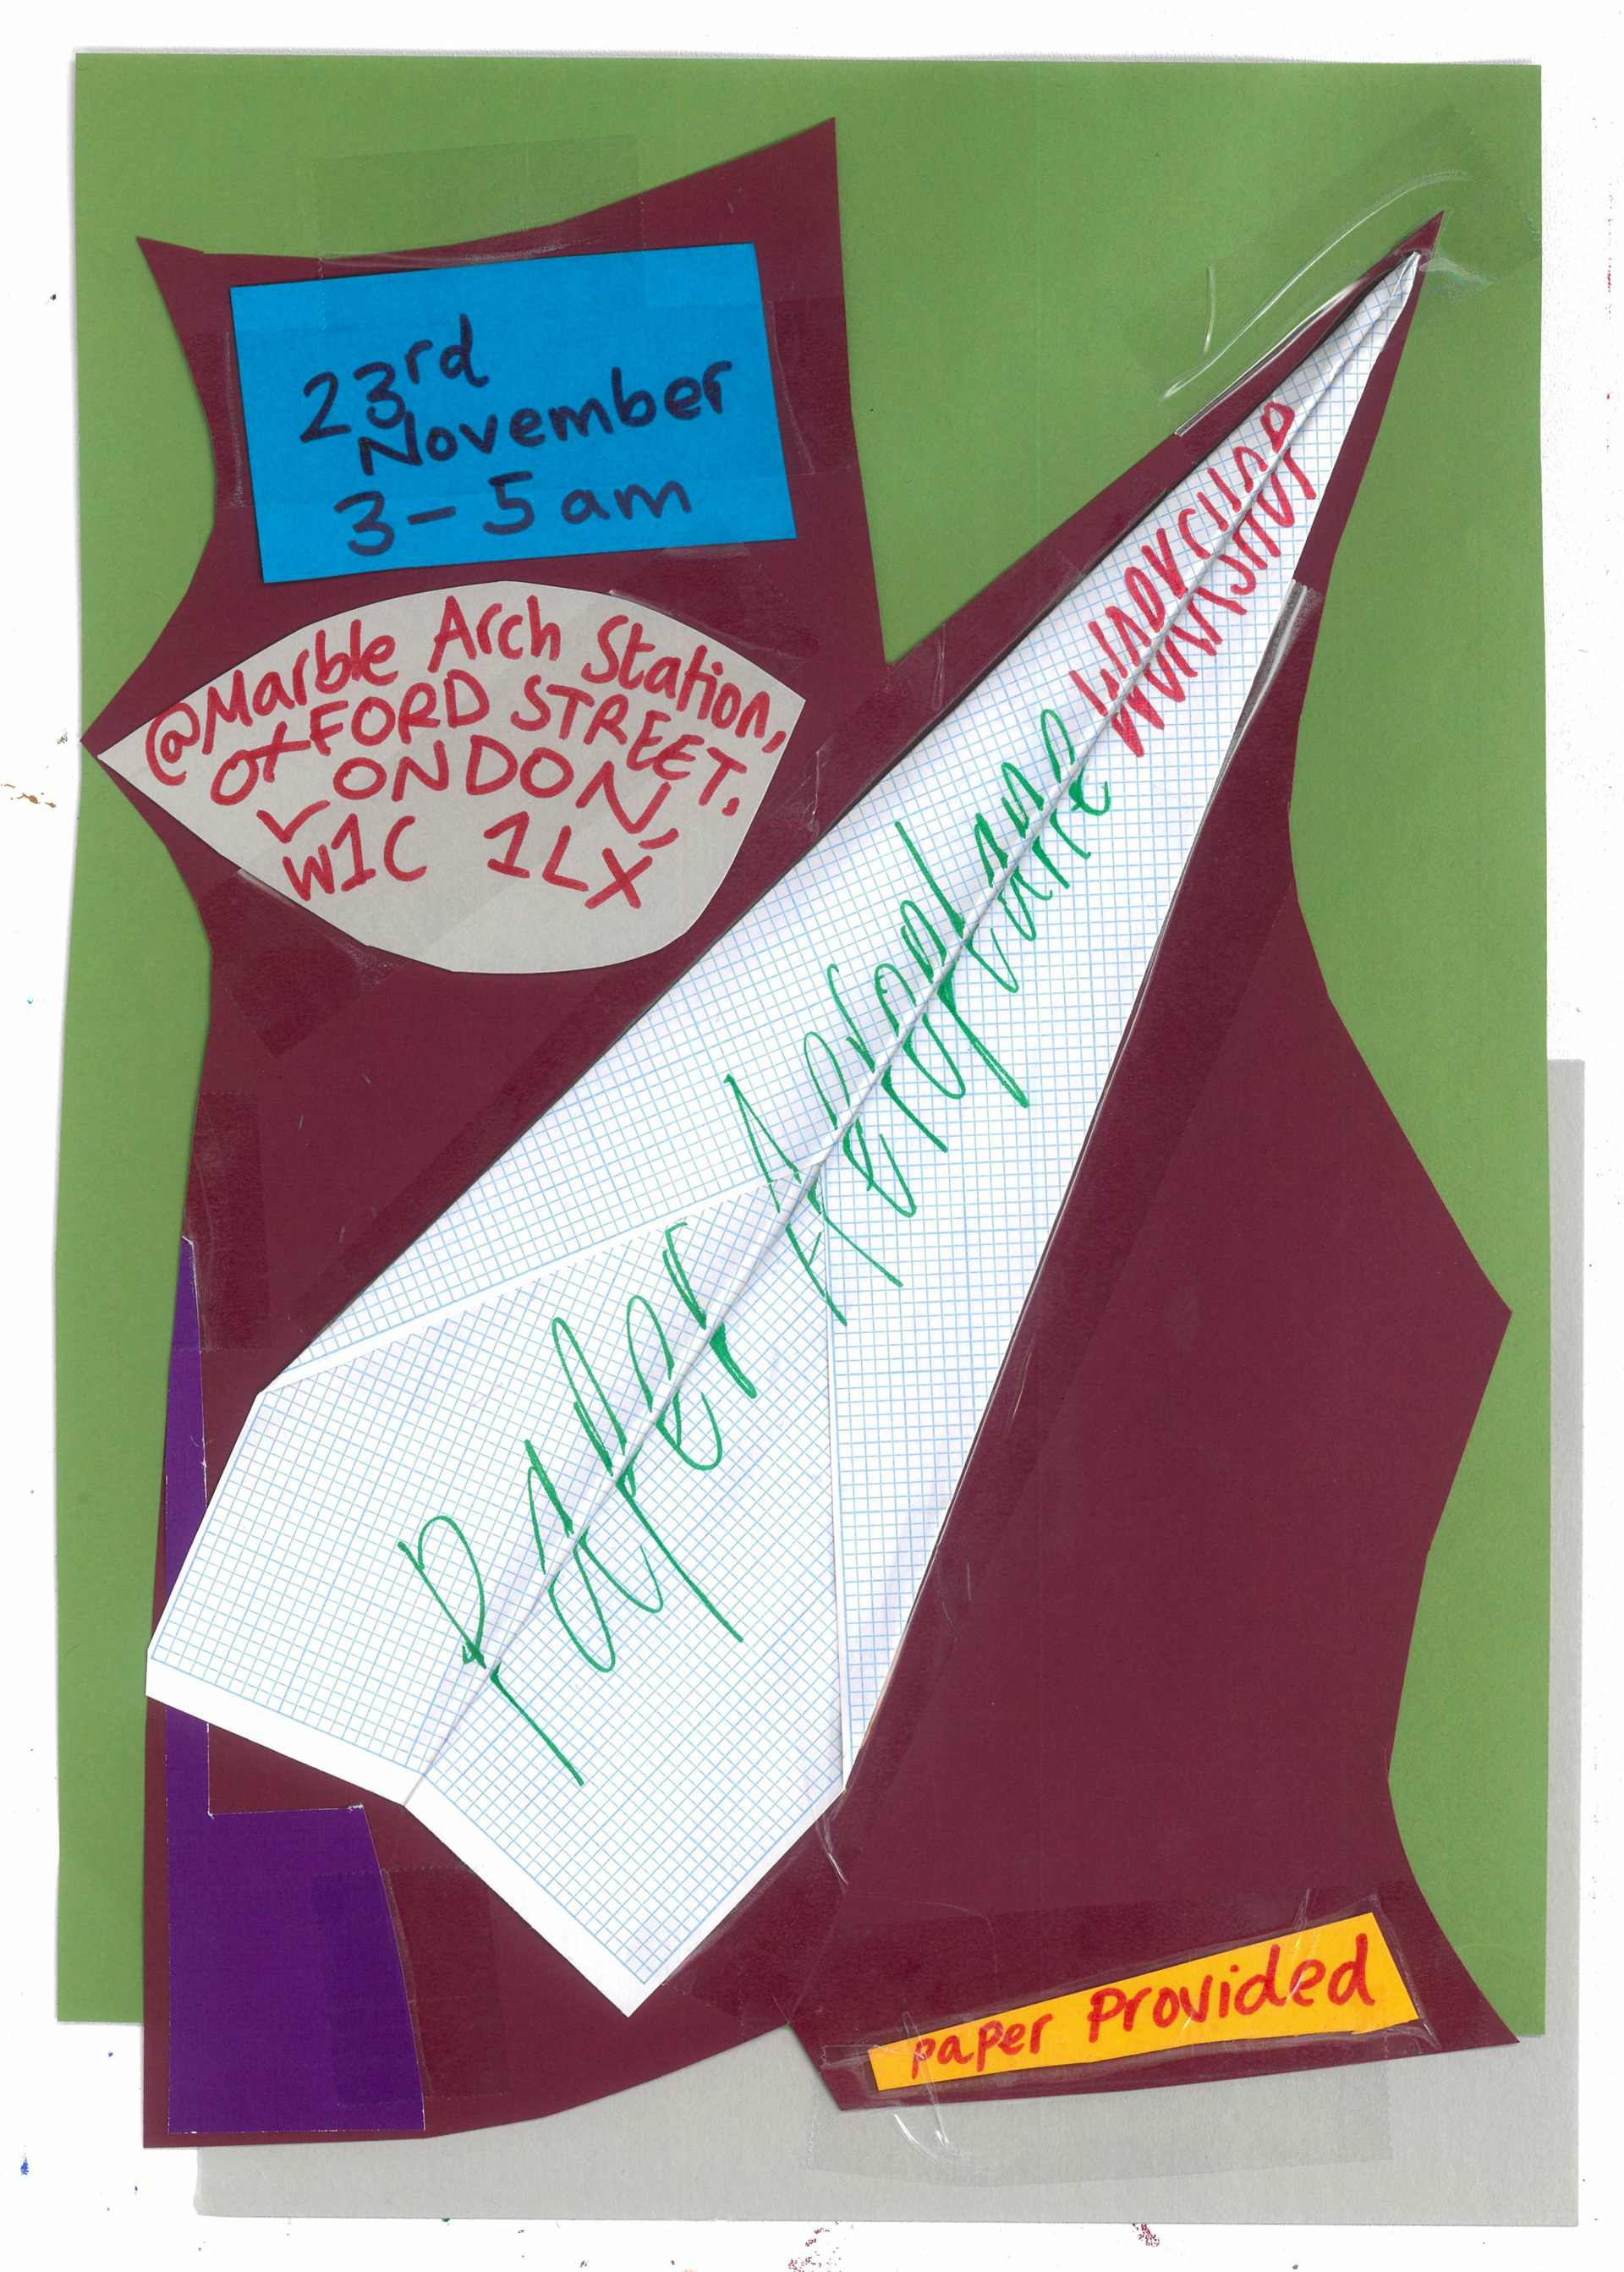 23rd
November
3-5am
@Marble Arch Station,
OxFORD STREET,
LONDON,
W1C 1LX
Paper Aeroplane WORKSHOP
paper Provided